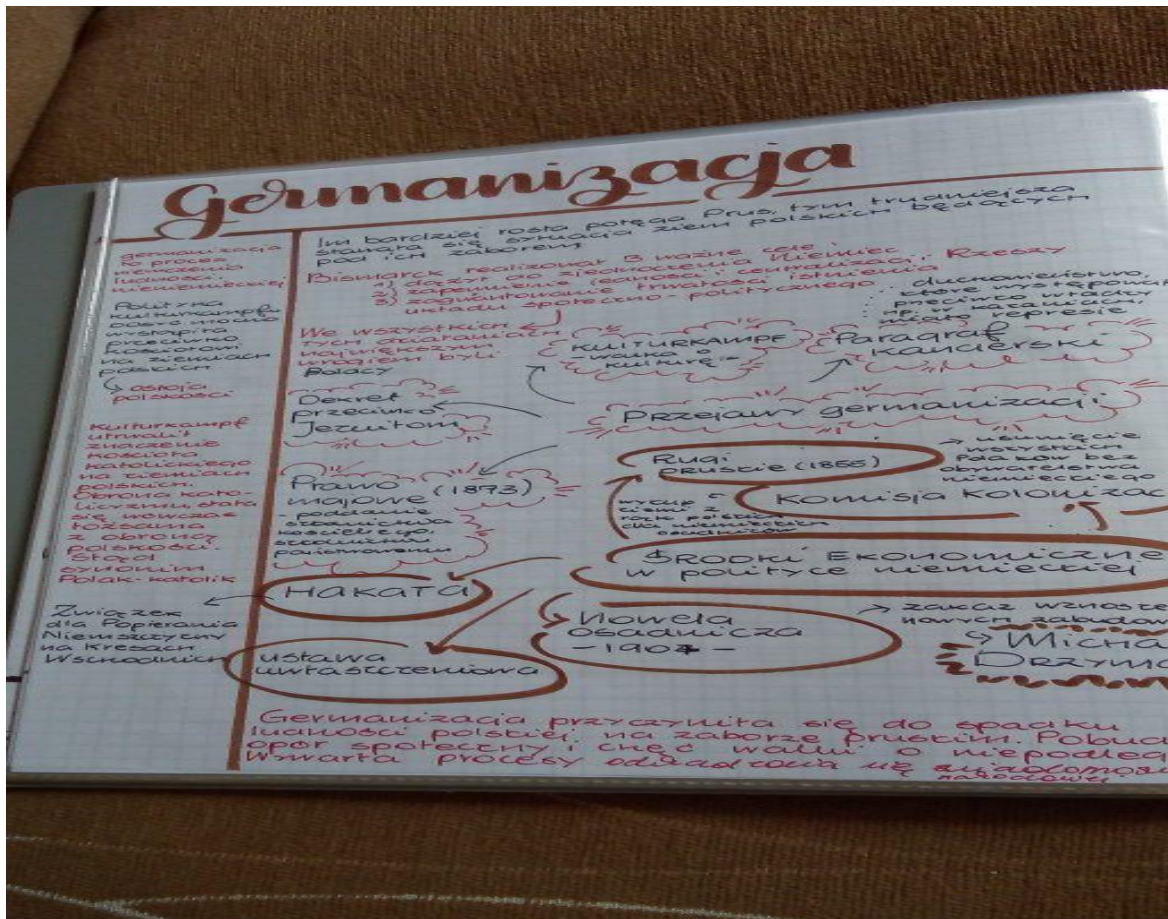 Germanizacja
germanizacja
to proces
niemczenia
ludności
nieniemieckiej
Polityka
kulturkampfu
bardzo mocno
wystąpiła
przeciwko
kościołowi
na ziemiach
polskich
ostoja
polskości
Kulturkampf
utrwalił
znaczenie
kościoła
katolickiego
na ziemiach
polskich.
Obrona kato-
licyzmu stała
się wówczas
tożsama
z obroną
polskości.
Stąd
synonim
Polak-katolik
Związek
dla Popierania
Niemczyzny
na Kresach
Wschodnich
Im bardziej rosła potęga Prus, tym trudniejsza
stawała się sytuacja ziem polskich będących
pod ich zaborem
Bismarck realizował 3 ważne cele:
1) dążył do zjednoczenia Niemiec
2) zapewnienie jedności i centralizacji Rzeszy
3) zagwarantowanie trwałości istnienia
układu społeczno-politycznego
We wszystkich
tych działaniach
największym
wrogiem byli
Polacy
KULTURKAMPF
- walka o
kulturę -
duchowieństwo,
które występował
przeciwko władzy
np. w kazaniach,
miało represje
Paragraf
kanclerski
Dekret
przeciwko
Jezuitom
Przejawy germanizacji:
Prawo
majowe (1873)
- poddanie
szkolnictwa
kościelnego
państwowemu
Rugi
pruskie (1885)
usunięcie
wszystkich
Polaków bez
obywatelstwa
niemieckiego
Komisja Kolonizac
wykup
ziemi z
rąk polskich
dla niemieckich
osadników
ŚRODKI EKONOMICZNE
w polityce niemieckiej
HAKATA
Nowela
osadnicza
-1904-
zakaz wznosze
nowych zabudow
Micha
DRZYMA
ustawa
uwłaszczeniowa
Germanizacja przyczyniła się do spadku
ludności polskiej na zaborze pruskim. Pobud
opór społeczny i chęć walki o niepodleg
Wywarła procesy odradzania się świadomości
narodowej